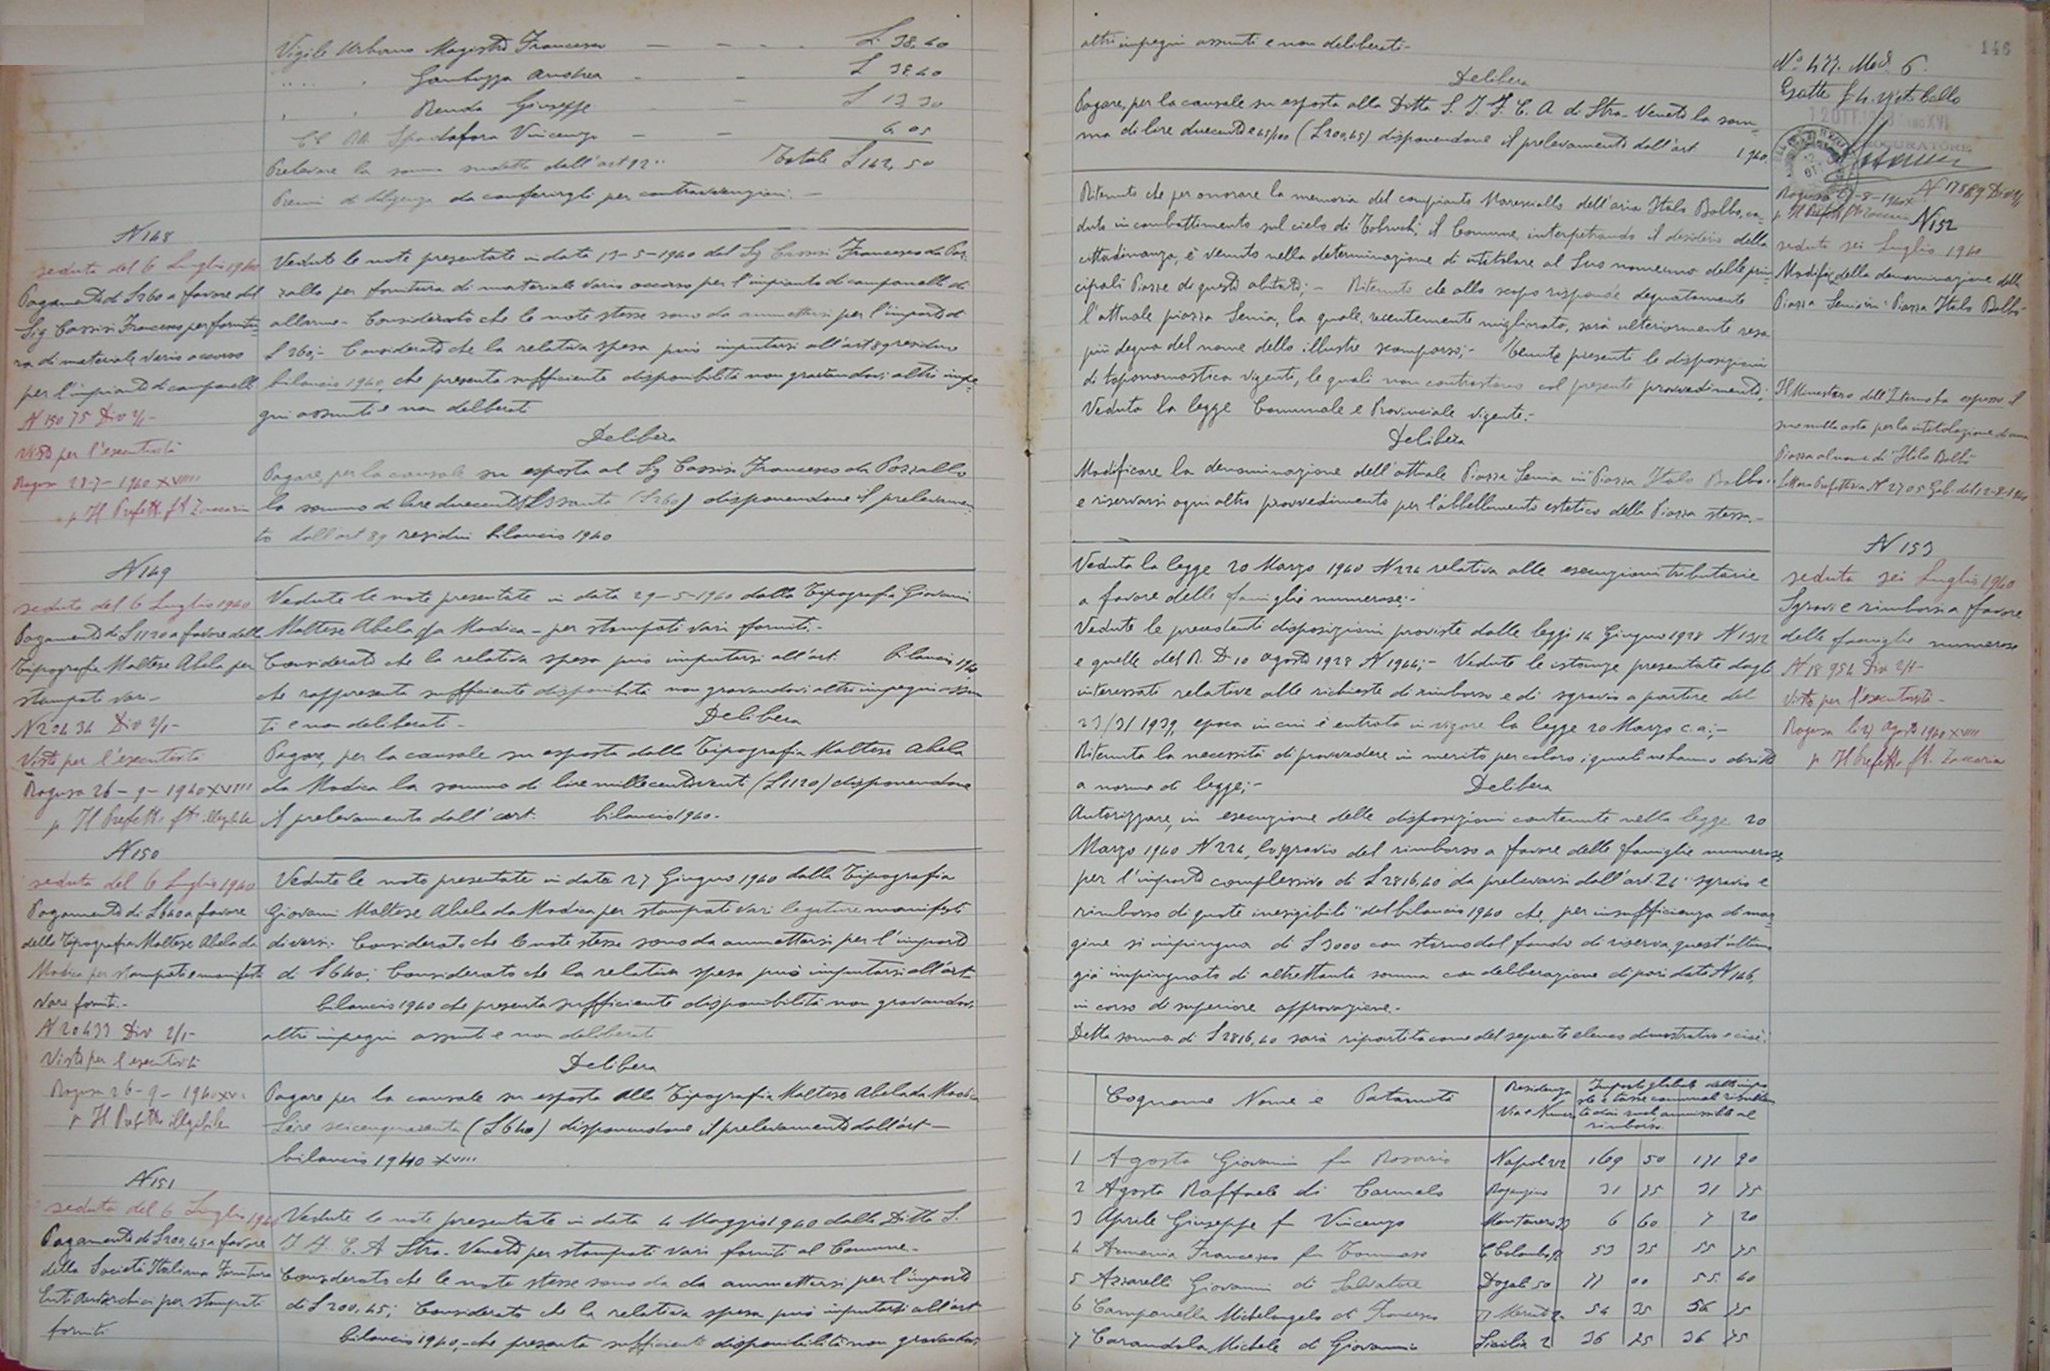 Vigile Urbano Magistro Francesco — — L. 38,40
Gambuzza Andrea - - L 38.40
Renda Giuseppe - L 13 30
Spadafora Vincenzo — — 6.05
Prelevare la somma suddetta dall'art 92" Totale L 142,50
Premi di diligenza da conferirgli per contravvenzioni. —
N 148
seduta del 6 Luglio 1940
Pagamento di L 260 a favore del
Sig Cassisi Francesco per fornitu-
ra di materiale vario occorso
per l'impianto di campanelli
N 15075 Div 2/1-
Visto per l'esecutività
Ragusa 23-7-1940 XVIII
p Il Prefetto ft Zaccaria
Vedute le note presentate in data 13-5-1940 dal Sig Cassisi Francesco da Poz-
zallo per fornitura di materiale vario occorso per l'impianto di campanelli di
allarme. Considerato che le note stesse sono da ammettersi per l'importo di
L 260;- Considerato che la relativa spesa può imputarsi all'art 89 residui
bilancio 1940, che presenta sufficiente disponibilità non gravandovi altri impe-
gni assunti e non deliberati
Delibera
Pagare, per la causale su esposta al Sig Cassisi Francesco da Pozzallo
la somma di lire duecentosessanta (L 260) disponendone il prelevamen-
to dall'art 89 residui bilancio 1940
N 149
seduta del 6 Luglio 1940
Pagamento di L 1120 a favore della
Tipografia Maltese Abela per
stampati vari-
N 20434 Div 2/1-
Visto per l'esecutività
Ragusa 26-9-1940 XVIII
p Il Prefetto ft° illegibile
Vedute le note presentate in data 29-5-1940 dalla Tipografia Giovanni
Maltese Abela da Modica - per stampati vari forniti.-
Considerato che la relativa spesa può imputarsi all'art. bilancio 1940
che rappresenta sufficiente disponibilità non gravandovi altri impegni assun
ti e non deliberati- Delibera
Pagare, per la causale su esposta dalla Tipografia Maltese Abela
da Modica la somma di lire millecentoventi (L 1120) disponendone
il prelevamento dall'art. bilancio 1940.
N 150
seduta del 6 Luglio 1940
Pagamento di L 640 a favore
della Tipografia Maltese Abela da
Modica per stampati e manifesti
vari forniti.-
N 20433 Div 2/1-
Visto per l'esecutività
Ragusa 26-9-1940 XVI
p Il Prefetto illegibile
Vedute le note presentate in data 27 Giugno 1940 dalla Tipografia
Giovanni Maltese Abela da Modica per stampati vari legature manifesti
diversi: Considerato che le note stesse sono da ammettersi per l'importo
di L 640; Considerato che la relativa spesa può imputarsi all'art
bilancio 1940 che presenta sufficiente disponibilità non gravandovi
altri impegni assunti e non deliberati
Delibera
Pagare per la causale su esposta alla Tipografia Maltese Abela da Modica
Lire seicentoquaranta (L 640) disponendone il prelevamento dall'art —
bilancio 1940 XVIII
N 151
seduta del 6 Luglio 1940
Pagamento di L 200,45 a favore
della Società Italiana Fornitura
Enti Autarchici per stampati
forniti
Vedute le note presentate in data 4 Maggio 1940 dalla Ditta S.
I. F. E. A Stra-Veneto per stampati vari forniti al Comune.-
Considerato che le note stesse sono da da ammettersi per l'importo
di L 200.45; Considerato che la relativa spesa può imputarsi all'art
bilancio 1940, che presenta sufficiente disponibilità non gravandovi
146
altri impegni assunti e non deliberati-
Delibera
Pagare, per la causale su esposta alla Ditta S. I. F. E. A di Stra-Veneto la som-
ma di lire duecento e 45/100 (L 200,45) disponendone il prelevamento dall'art 1940
N° 477. Mod. 6.
Esatte
PROCURATORE
N 17589 Div 2/1
Ragusa 27-8-1940 X
p Il Prefetto ft Zaccaria
N 152
seduta sei Luglio 1940
Modifica della denominazione della
Piazza Senia in "Piazza Italo Balbo"
Il Ministero dell'Interno ha espresso il
suo nulla osta per la intitolazione di una
Piazza al nome di "Italo Balbo"
lettera Prefettizia N 2705 Gab. del 12-8-1940
Ritenuto che per onorare la memoria del compianto Maresciallo dell'aria Italo Balbo, ca-
duto in combattimento sul cielo di Tobruch, il Comune, interpetrando il desiderio della
cittadinanza, è venuto nella determinazione di intitolare al Suo nome una delle prin-
cipali Piazze di questo abitato;- Ritenuto che allo scopo risponde degnatamente
l'attuale piazza Senia, la quale, recentemente migliorata, sarà ulteriormente resa
più degna del nome dello illustre scomparso;- Tenute presenti le disposizioni
di toponomastica vigente, le quali non contrastano col presente provvedimento;
Veduta la legge Comunale e Provinciale vigente.-
Delibera
Modificare la denominazione dell'attuale Piazza Senia in "Piazza Italo Balbo"
e riservarsi ogni altro provvedimento per l'abbellimento estetico della Piazza stessa.-
N 153
seduta sei Luglio 1940
Sgravi e rimborsi a favore
delle famiglie numerose
N 18954 Div 2/1-
Visto per l'esecutività-
Ragusa li 27 Agosto 1940 XVIII
p Il Prefetto ft. Zaccaria
Veduta la legge 20 Marzo 1940 N 224 relativa alle esenzioni tributarie
a favore delle famiglie numerose;-
Vedute le precedenti disposizioni proviste dalle leggi 14 Giugno 1928 N 1312
e quelle del R. D. 10 agosto 1928 N 1944;- Vedute le istanze presentate dagli
interessati relative alle richieste di rimborso e di sgravio a partire del
23/31 1939, epoca in cui è entrata in vigore la legge 20 Marzo c.a;-
Ritenuta la necessità di provvedere in merito per coloro i quali ne hanno diritto
a norma di legge;- Delibera
Autorizzare, in esecuzione delle disposizioni contenute nella legge 20
Marzo 1940 N 224, lo sgravio del rimborso a favore delle famiglie numerose,
per l'importo complessivo di L 2816,40 da prelevarsi dall'art. 24 "sgravio e
rimborso di quote inesigibili" del bilancio 1940 che, per insufficienza di mar
gine si impingua di L 3000 con storno dal fondo di riserva, quest'ultimo
già impinguato di altrettanta somma con deliberazione di pari data N 146,
in corso di superiore approvazione.-
Detta somma di L 2816,40 sarà ripartita come del seguente elenco dimostrativo e cioè:
Cognome Nome e Paternità Residenza Via e Numero Importo globale delle impo
ste e tasse comunali
rimborso
1 Agosta Giovanni fu Rosario Napoli 212 169 50 171 90
2 Agosta Raffaele di Carmelo 31 75 31 75
3 Aprile Giuseppe fu Vincenzo Montenero 33 6 60 7 20
4 Armenia Francesco fu Tommaso C Colombo 53 35 55 75
5 Azzarelli Giovanni di Salvatore Dogali 50 71 00 55. 40
6 Campanella Michelangelo di Francesco 54 35 56 75
7 Carandola Michele di Giovanni Sicilia 2 36 75 36 75